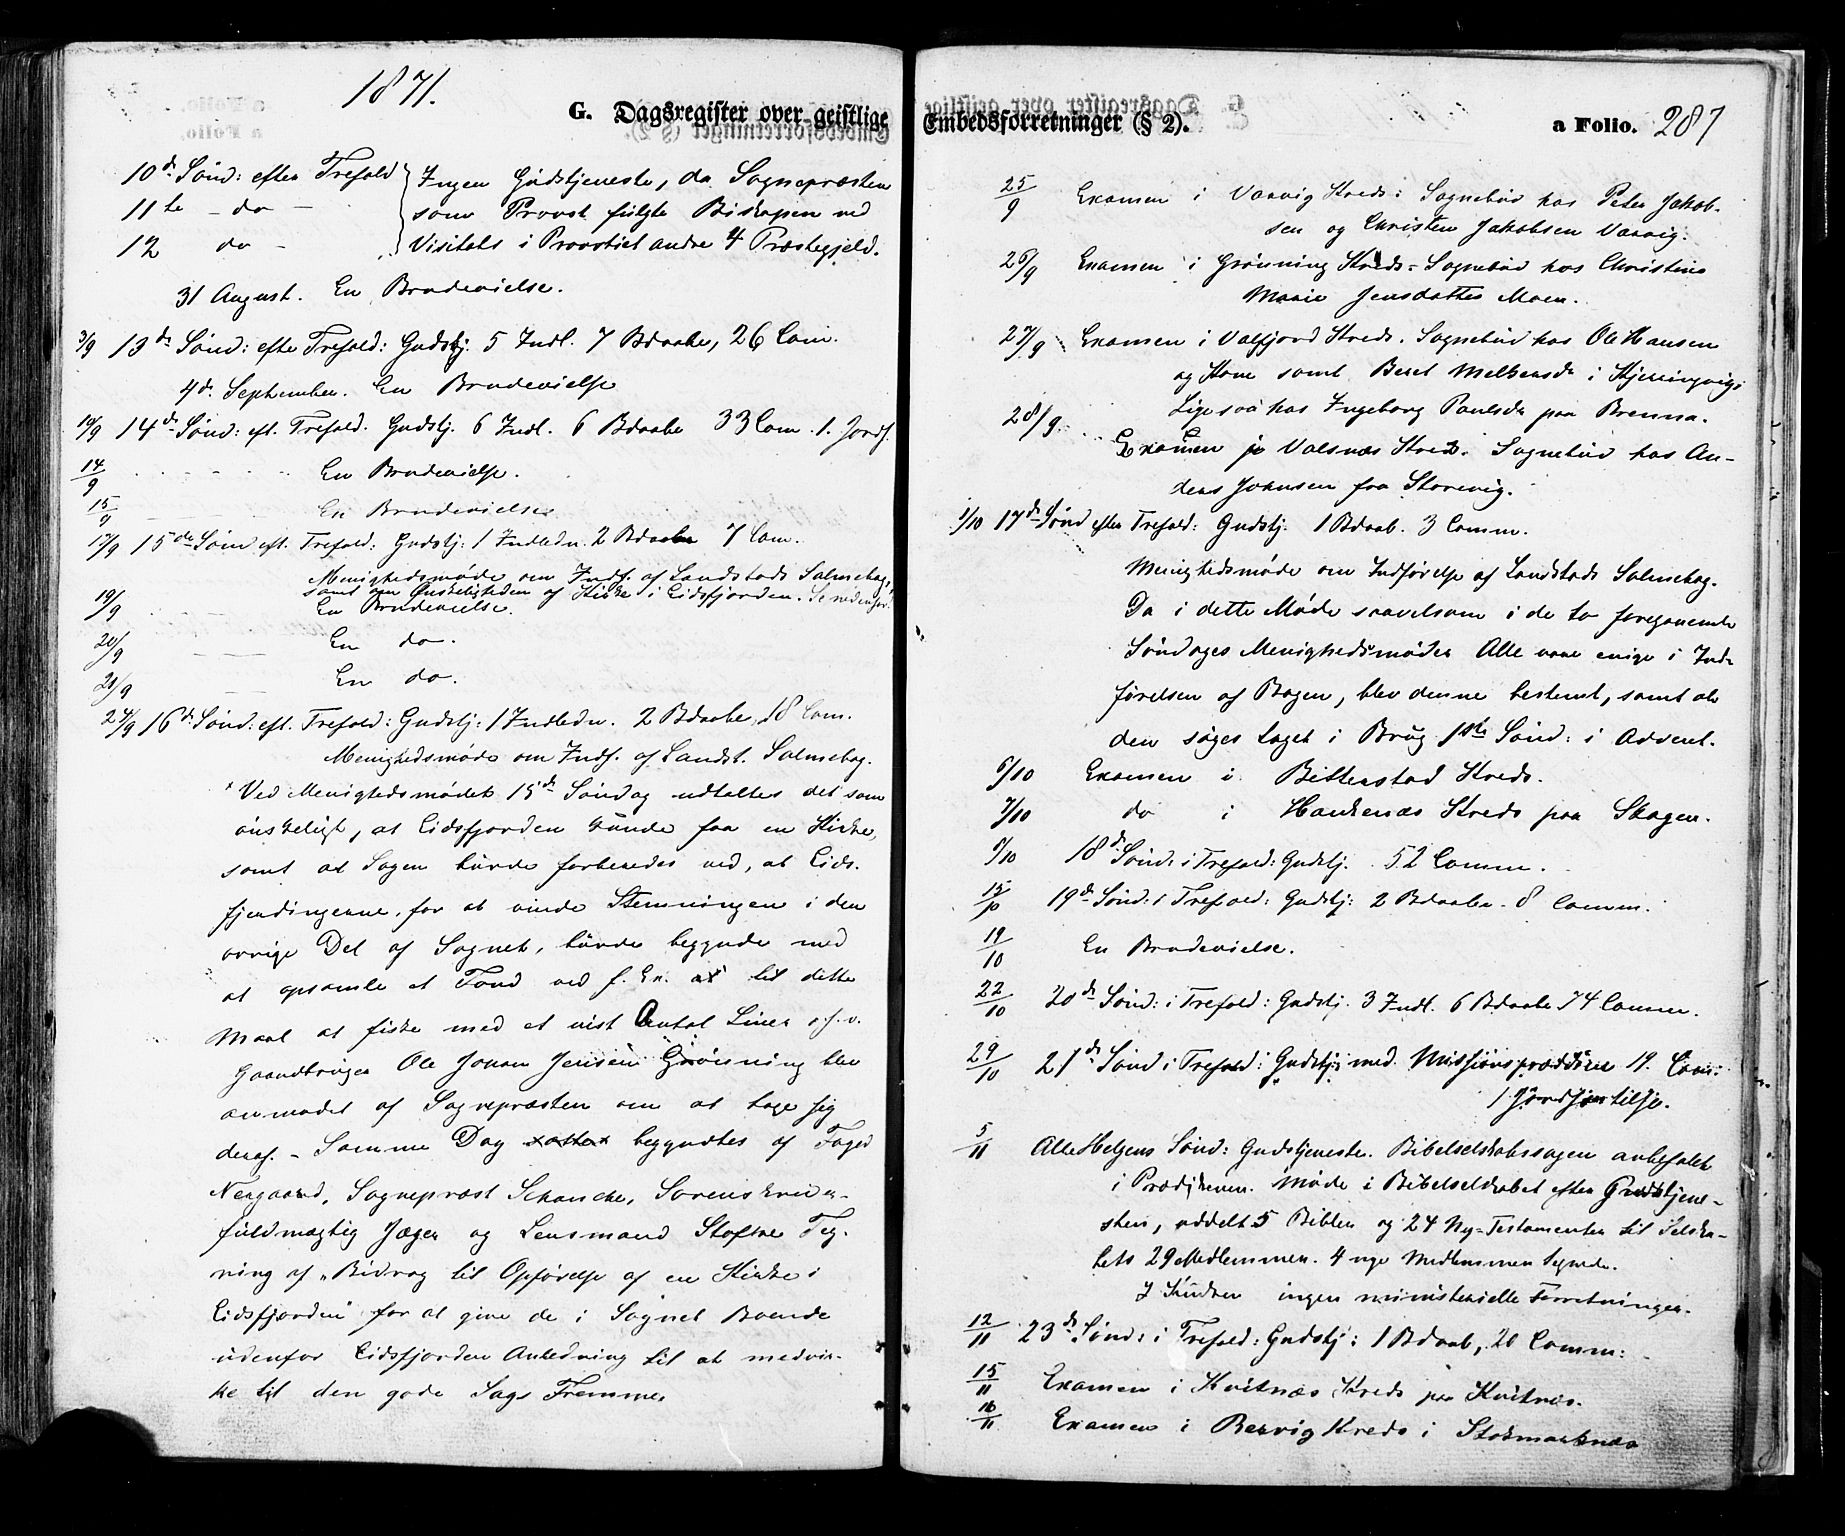 1871.
G. Dagsregister over geistlige
10de Sønd: efter Trefold Ingen Gudstjeneste, da Sognepræsten
11te - do - som Provst fulgte Biskopen ved
12 do - Visitats i Provstiet andre 4 Præstegjeld.
31 August. En Brudevielse.
3/9 13de Sønd: efter Trefold: Gudstj. 5 Indl. 7 Bdaabe, 26 Com.
4de September. En Brudevielse
10/9 14de Sønd: eft. Trefold. Gudstj. 6 Indl. 6 Bdaabe 33 Com. 1. Jordf.
14/9 En Brudevielse.
15/9 En Brudevielse
17/9 15de Sønd eft. Trefold: Gudstj: 1 Indledn. 2 Bdaabe 7 Com.
Menighedsmøde om Indf. af Landstads Salmebog,
samt om Ønskeligheden af Kirke i Eidsfjorden. Se nedenfor.
19/9 En Brudevielse.
20/9 En do.
21/9 En do.
24/9 16de Sønd: eft. Trefold: Gudstj: 1 Indledn. 2 Bdaabe, 18 Com.
Menighedsmøde om Indf. af Landst. Salmebog.
* Ved Menighedsmødet 15de Søndag udtaltes det som
ønskeligt, at Eidsfjorden kunde faa en Kirke,
samt at Sagen burde forberedes ved, at Eids-
fjerdingerne, for at vinde Stemningen i den
øvrige Del af Sognet, burde begynde med
at opsamle et Fond ved f. Ex. at til dette
Maal at fiske med et vist Antal Liner o.s.v.
Gaardbruger Ole Johan Jensen Grønning blev
anmodet af Sognepræsten om at tage sig
deraf. - Samme Dag begyndtes af Foged
Neugaard, Sognepræst Schancke, Sorenskriver-
fuldmægtig Jæger og Lensmand Stofne Teg-
ning af "Bidrag til Opførelse af en Kirke i
Eidsfjorden" for at give de i Sognet Boende
udenfor Eidsfjorden Anledning til at medvir-
ke til den gode Sags Fremme.
Embedsforretninger (§ 2).
a Folio. 287
25/9 Examen i Vaavig Kreds: Sognebud hos Peter Jakob-
sen og Christen Jakobsen Vaavig.
26/9 Examen i Grønning Kreds - Sognebud hos Christine
Marie Jensdatter Moen.
27/9 Examen i Valfjord Kreds. Sognebud hos Ole Hansen
og Kone samt Beret Melkersdr i Kjerringvig.
Ligesaa hos Ingeborg Paulsdr paa Brenna.
28/9 Examen i Valsnæs Kreds. Sognebud hos An-
ders Johnsen fra Storevig.
1/10 17de Sønd efter Trefold: Gudstj. 1 Bdaab. 3 Comm.
Menighedsmøde om Indførelse af Landstads Salmebog.
Da i dette Møde saavelsom i de to foregaaende
Søndages Menighedsmøder Alle vare enige i Ind-
førelsen af Bogen, blev denne bestemt, samt at
den søges taget i Brug 1ste Sønd: i Advent.
6/10 Examen i Bitterstad Kreds.
7/10 do i Haukenæs Kreds paa Skagen.
8/10 18de Sønd: i Trefold: Gudstj. 52 Comm.
15/10 19de Sønd: i Trefold: Gudstj: 2 Bdaabe - 8 Comm.
19/10 En Brudevielse.
22/10 20de Sønd: i Trefold: Gudstj. 3 Indl. 6 Bdaabe 74 Comm.
29/10 21de Sønd i Trefold: Gudstj: med Missionsprædiken 19. Com:
1 Jordfæstelse.
5/11 Alle Helgens Sønd: Gudstjeneste. Bibelselskabssagen anbefalet
i Prædikenen. Møde i Bibelselskabet efter Gudstjene-
sten, uddelt 5 Bibler og 24 Ny-Testamenter til Selska-
bets 29 Medlemmer. 4 nye Medlemmer tegnede.
I Kirken ingen ministerielle Forretninger.
12/11 23de Sønd: i Trefold: Gudstj: 1 Bdaab, 20 Comm:
15/11 Examen i Kvitnæs Kreds paa Kvitnæs.
16/11 Examen i Bervig Kreds i Stokmarknæs